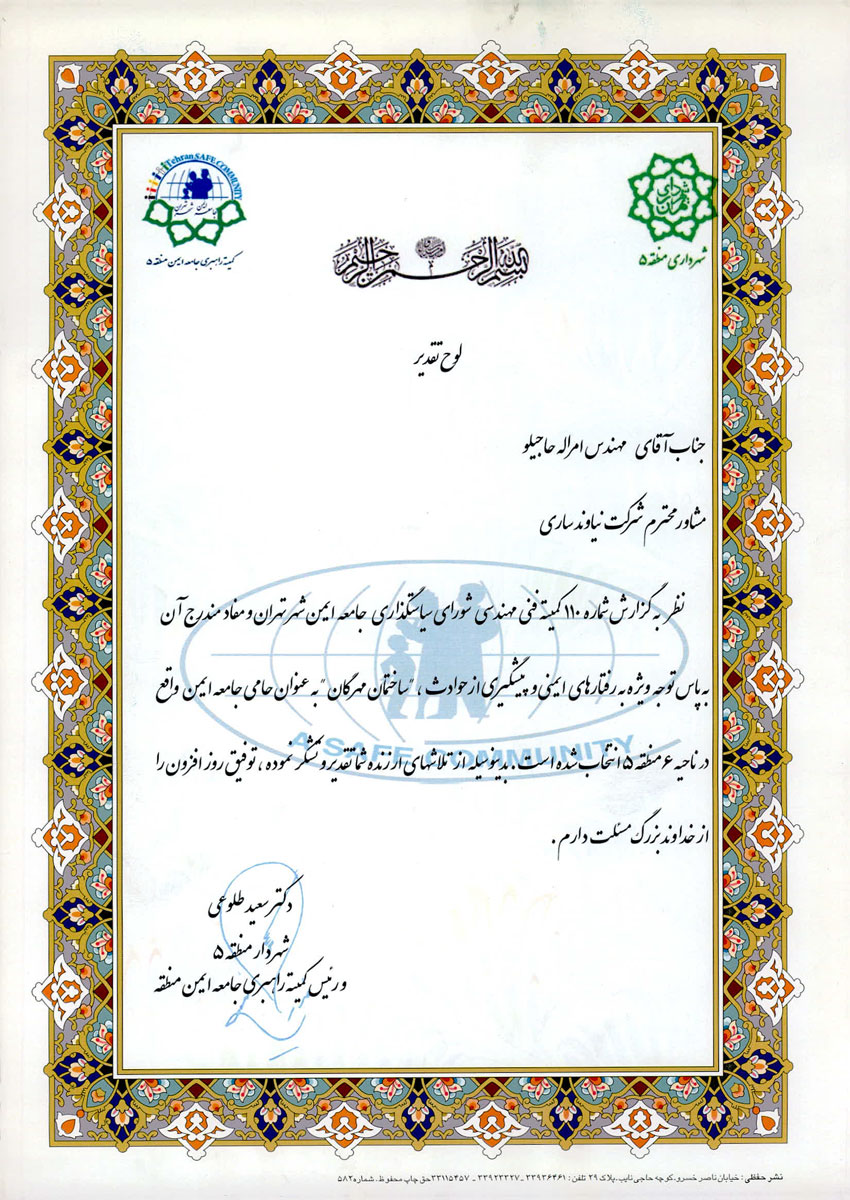 Tehran SAFE COMMUNITY
جامعه ایمن شهر تهران
کمیته راهبری جامعه ایمن منطقه ۵
شهرداری تهران
شهرداری منطقه ۵
بسم الله الرحمن الرحیم
لوح تقدیر
جناب آقای مهندس امراله حاجیلو
مشاور محترم شرکت نیاوند ساری
نظر به گزارش شماره ۱۱۰ کمیته فنی مهندسی شورای سیاستگذاری جامعه ایمن شهر تهران و مفاد مندرج آن
به پاس توجه ویژه به رفتارهای ایمنی و پیشگیری از حوادث ، "ساختمان مهرگان" به عنوان حامی جامعه ایمن واقع
در ناحیه ۶ منطقه ۵ انتخاب شده است. بدینوسیله از تلاشهای ارزنده شما تقدیر و تشکر نموده ، توفیق روز افزون را
از خداوند بزرگ مسئلت دارم .
A SAFE COMMUNITY
دکتر سعید طلوعی
شهردار منطقه ۵
و رئیس کمیته راهبری جامعه ایمن منطقه
نشر حفظی : خیابان ناصر خسرو، کوچه حاجی نایب، پلاک ۲۹ تلفن : ۳۳۹۳۶۴۶۱ - ۳۳۹۲۳۳۲۷ - ۳۳۱۱۵۴۵۷ حق چاپ محفوظ . شماره ۵۸۲